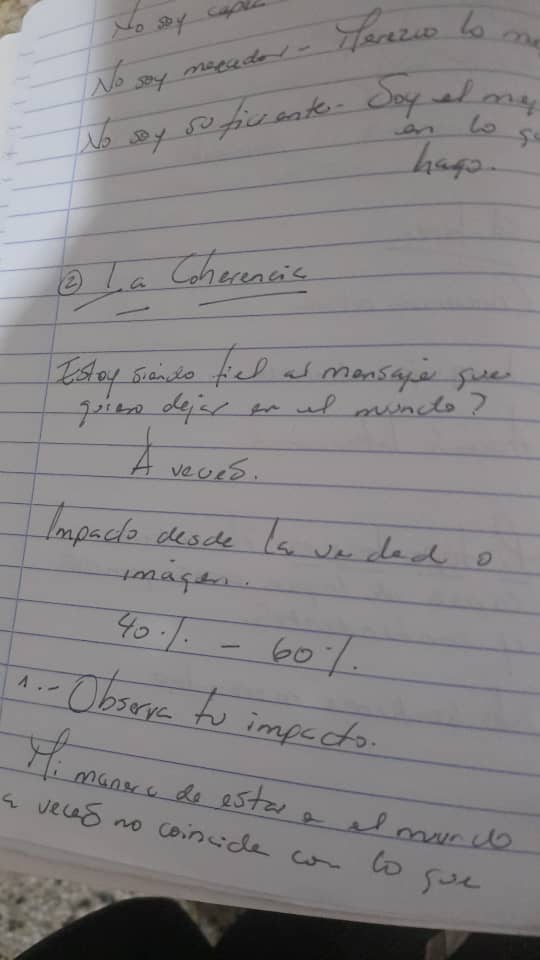 No soy capa
No soy merecedor - Merezco lo me
No soy suficiente - Soy el mej
en lo qu
hago.
② La Coherencia
Estoy siendo fiel al mensaje que
quiero dejar en el mundo?
A veces.
Impacto desde la verdad o
imágen.
40% - 60%
1.- Observa tu impacto.
Mi manera de estar e el mundo
a veces no coincide con lo que